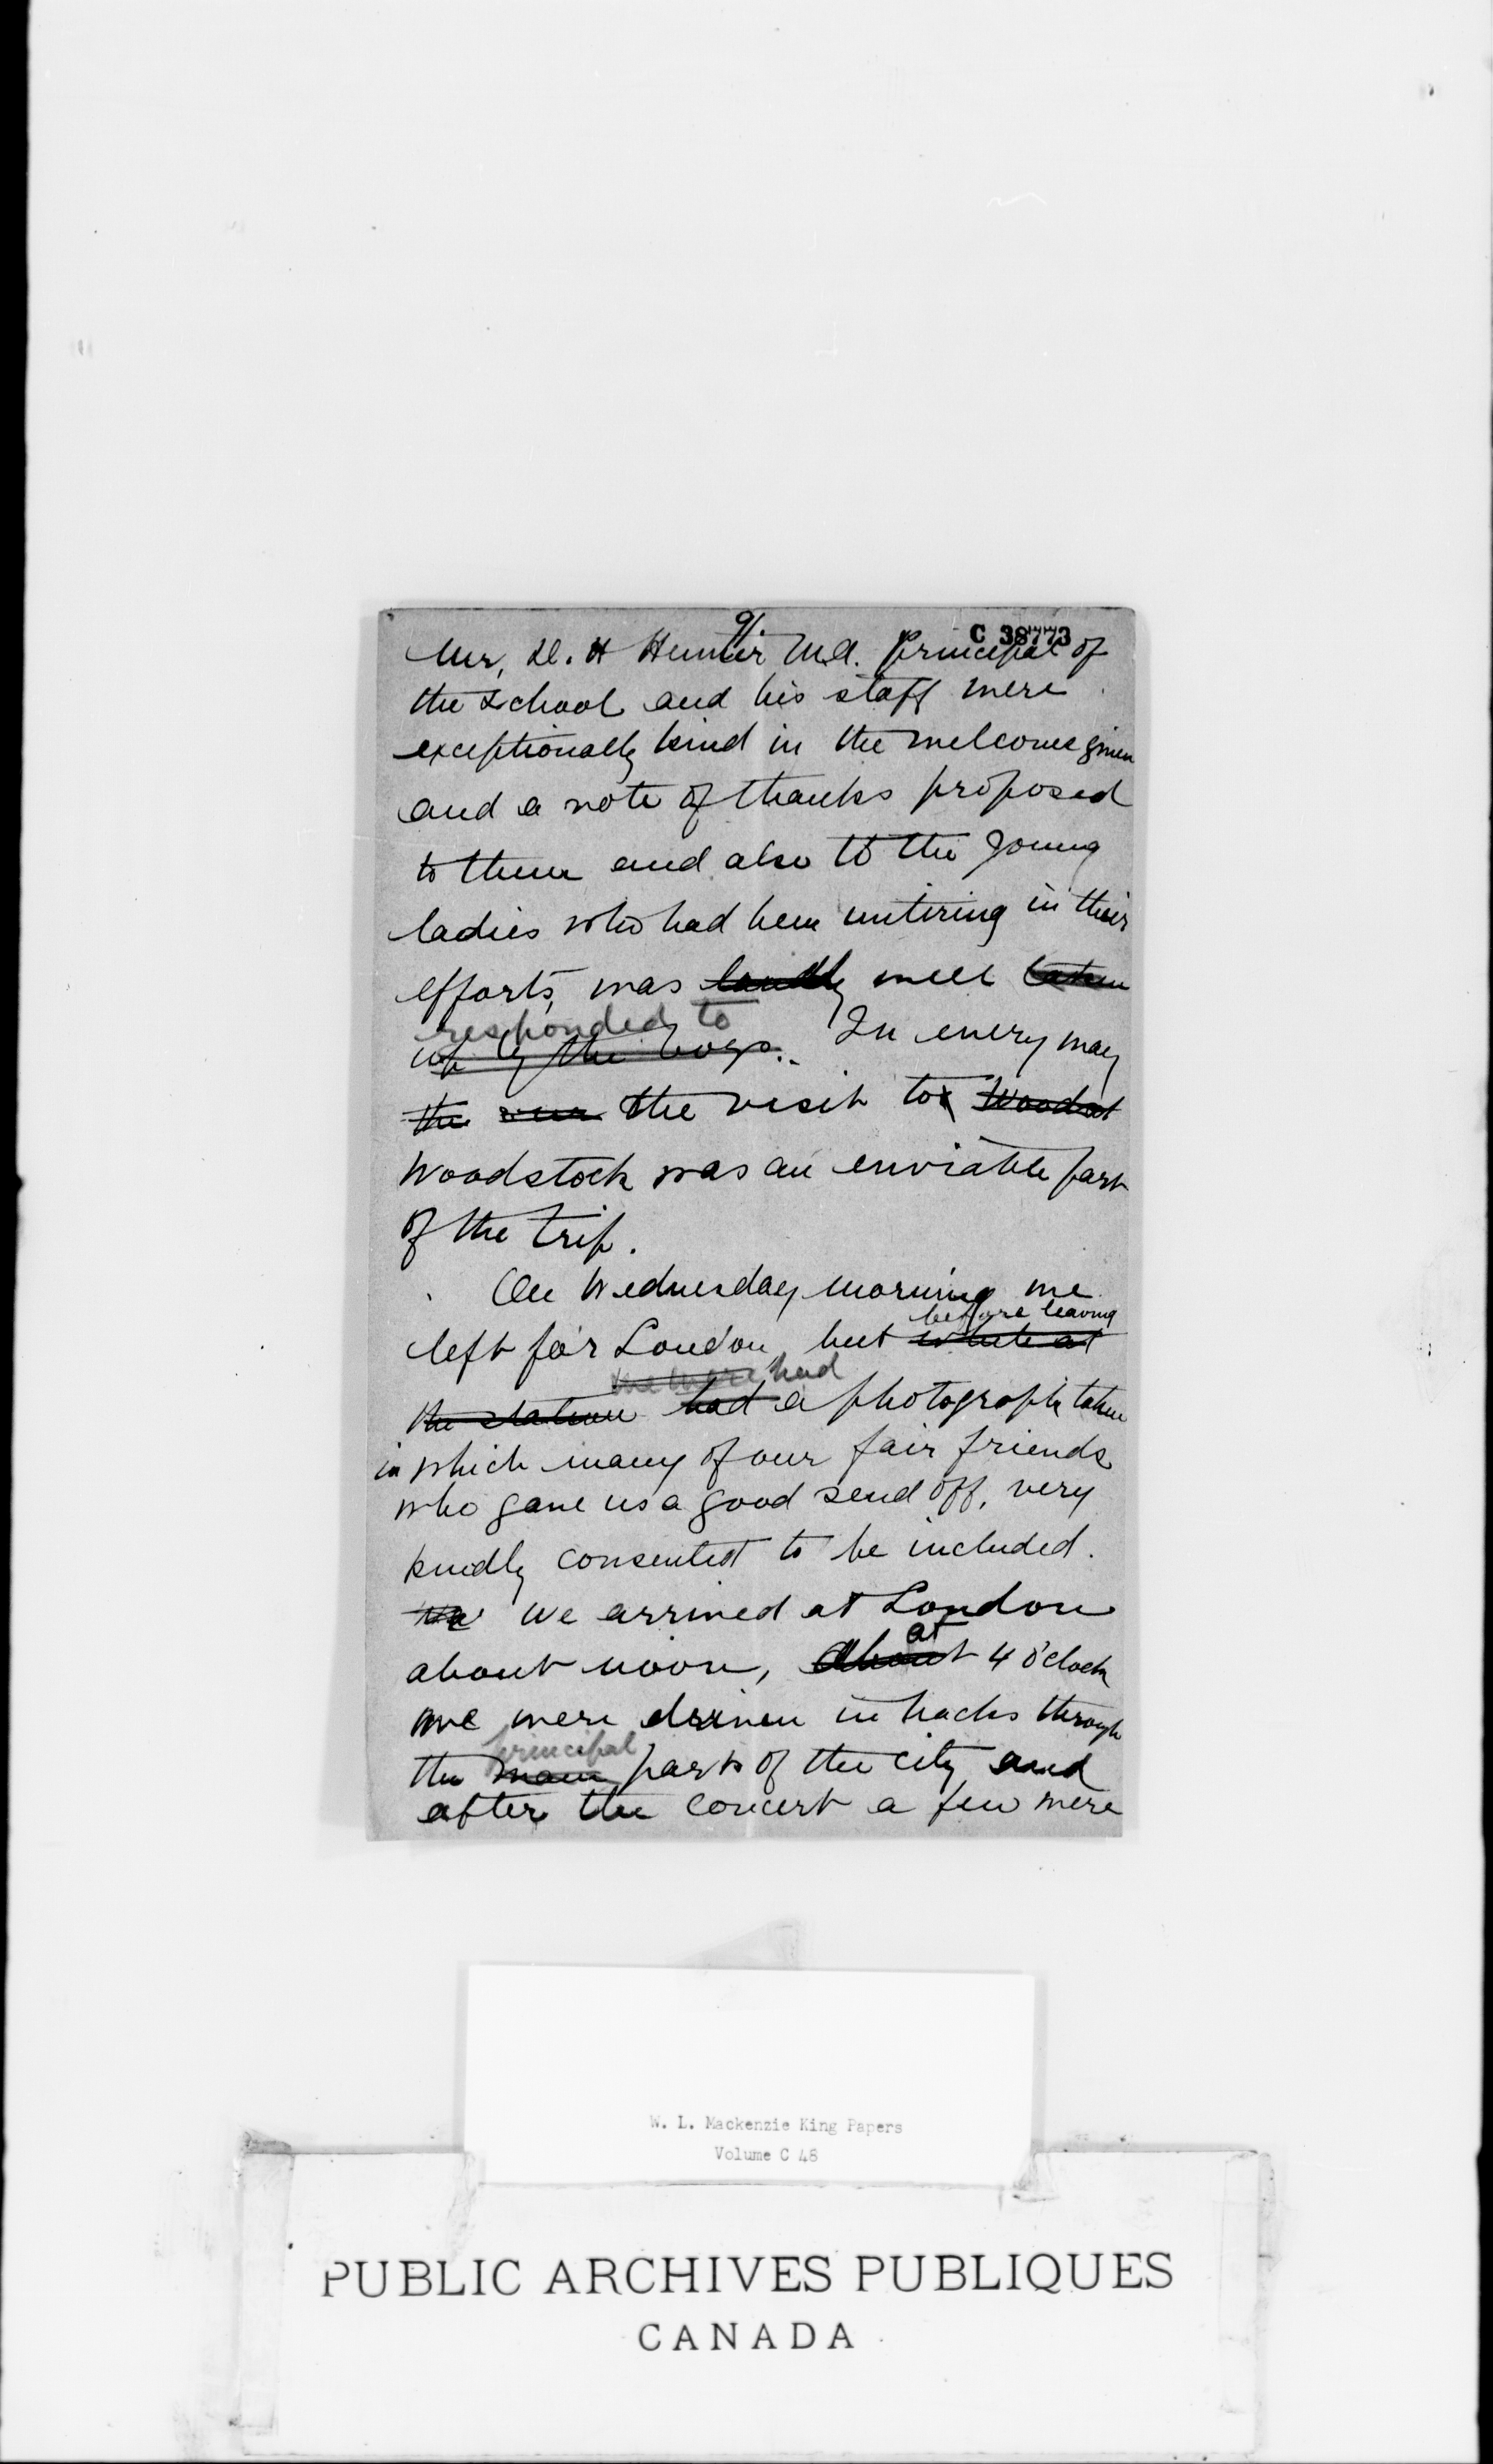 9/.
C 38773
Mr, D. H Hunter M.A. Principal of
the School and his staff were
exceptionally kind in the welcome given
and a vote of thanks proposed
to them and also to the young
ladies who had been untiring in their
efforts, was loudly well taken
responded to
up by the boys. In every way
the the visit to Woodst
Woodstock was an enviable part
of the trip.
On Wednesday morning we
before leaving
left for London, but while at
we were had
the station had a photograph taken
in which many of our fair friends
who gave us a good send off, very
kindly consented to be included.
We We arrived at London
at
about noon, about 4 o'clock
we were driven in hacks through
principal
the main parts of the city and
after the concert a few were
W. L. Mackenzie King Papers
Volume C 48
PUBLIC ARCHIVES PUBLIQUES
CANADA